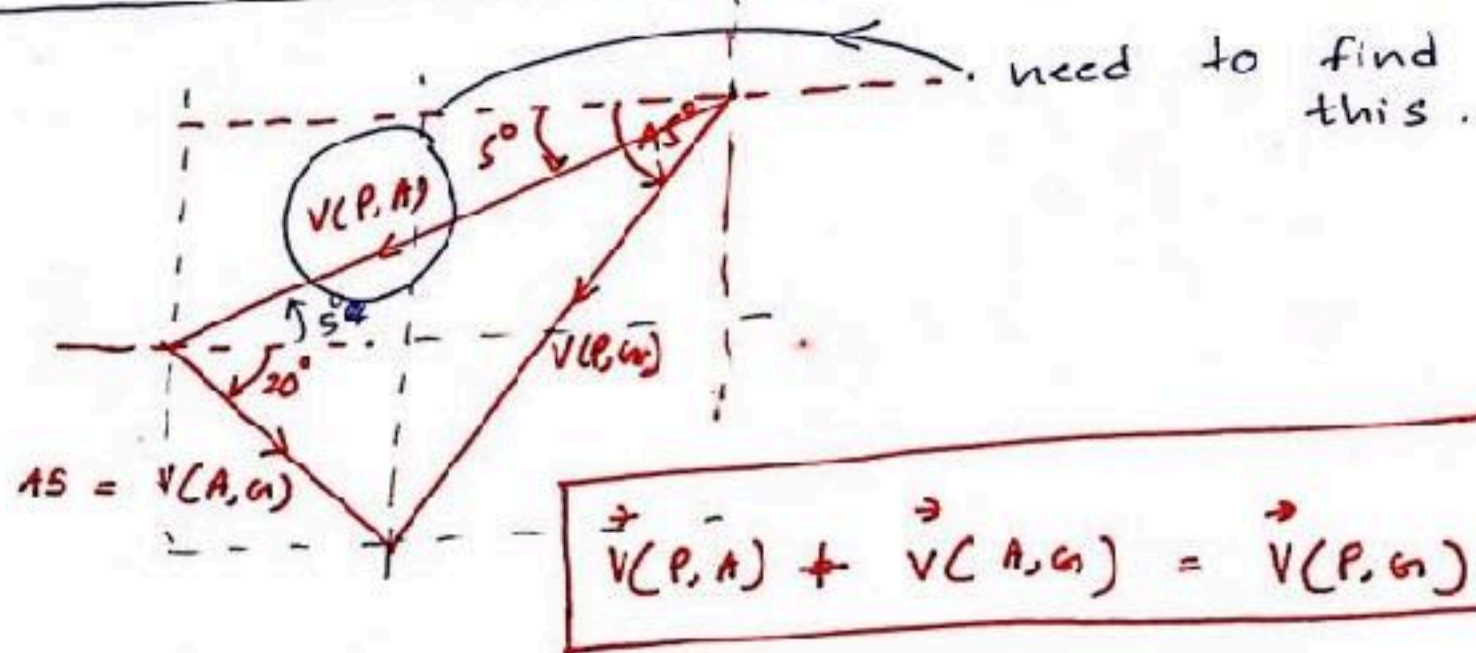 need to find
this.
5°
45°
V(P,A)
5°
20°
V(P,G)
45 = V(A,G)
V(P,A) + V(A,G) = V(P,G)